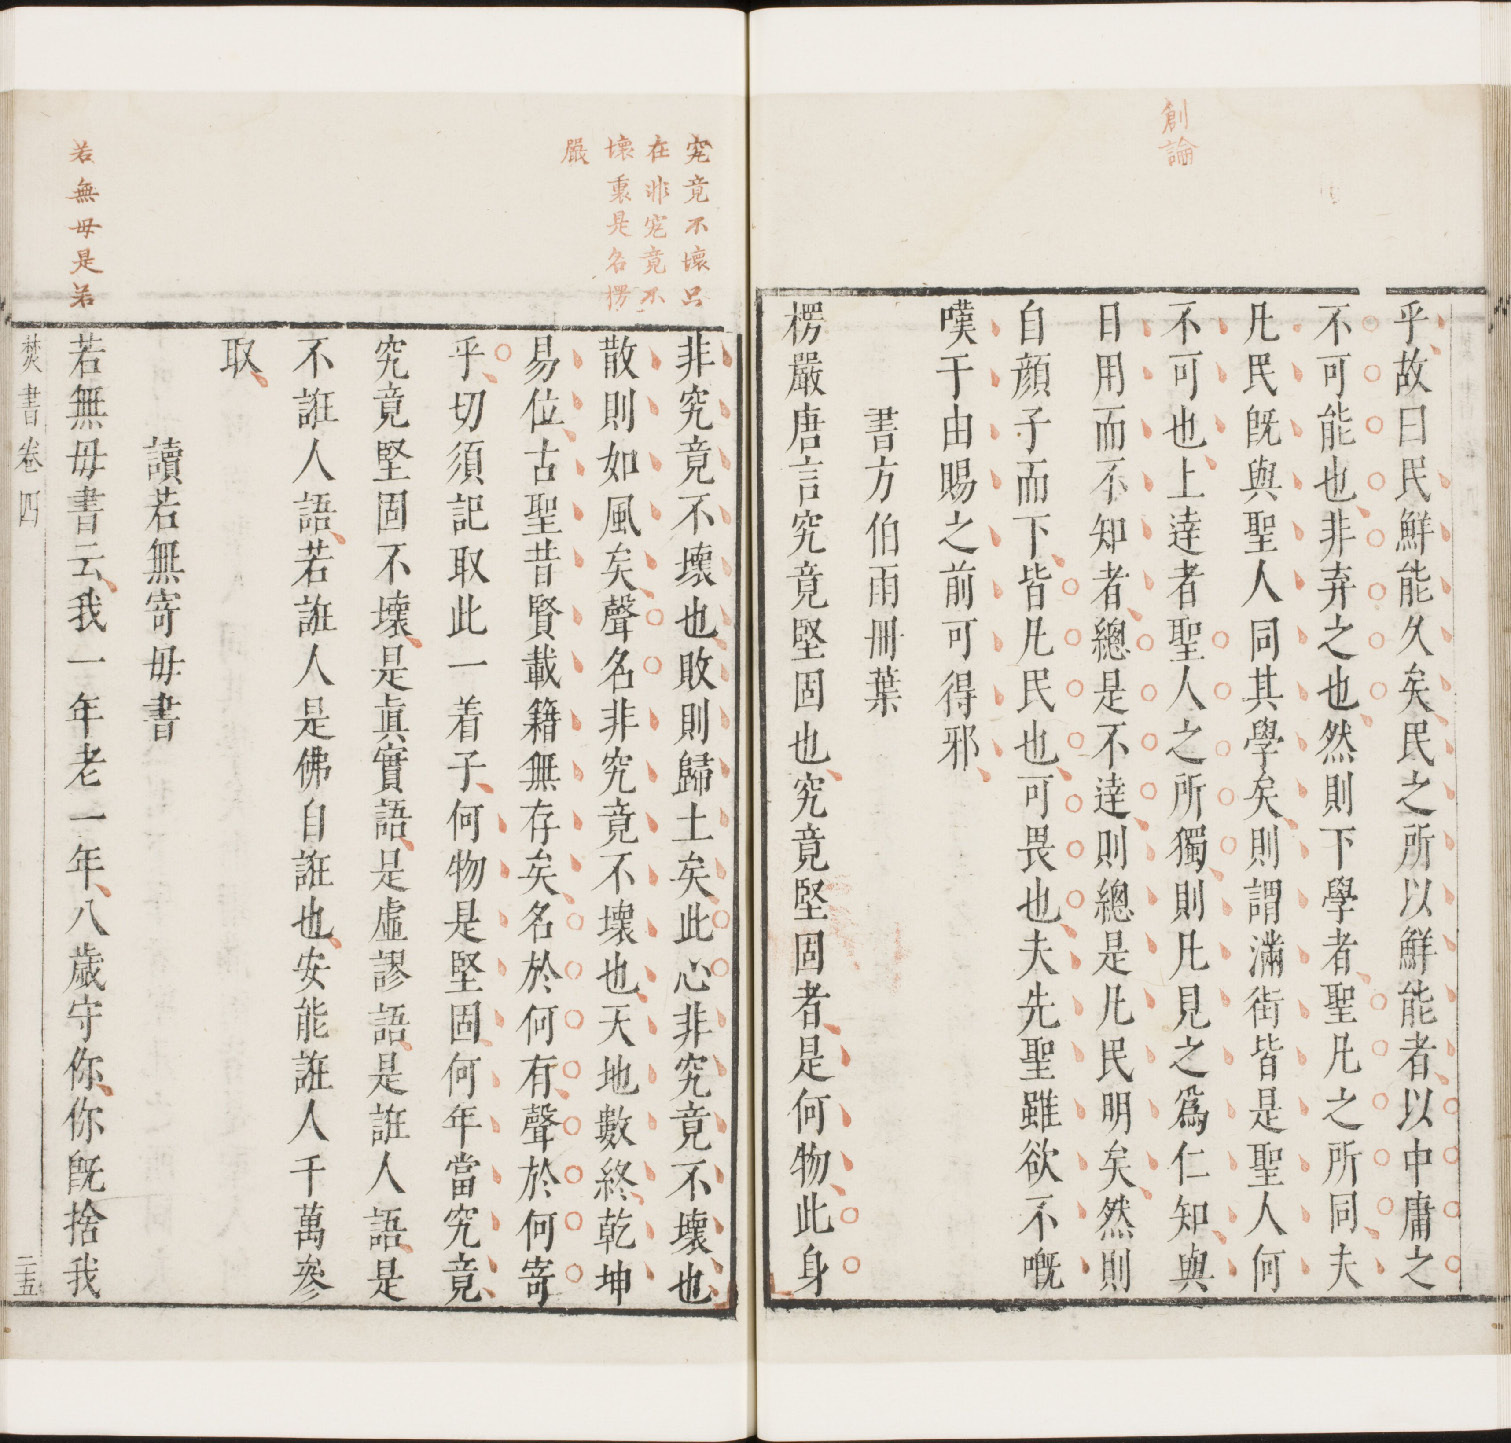 創論
乎故曰民鮮能久矣民之所以鮮能者以中庸之
不可能也非弃之也然則下學者聖凡之所同夫
凡民既與聖人同其學矣則謂滿街皆是聖人何
不可也上達者聖人之所獨則凡見之爲仁知與
日用而不知者總是不達則總是凡民明矣然則
自顔子而下皆凡民也可畏也夫先聖雖欲不嘅
嘆于由賜之前可得邪
書方伯雨冊葉
楞嚴唐言究竟堅固也究竟堅固者是何物此身
究竟不壞只
在非究竟不
壞裏是名楞
嚴
非究竟不壞也敗則歸土矣此心非究竟不壞也
散則如風矣聲名非究竟不壞也天地數終乾坤
易位古聖昔賢載籍無存矣名於何有聲於何寄
乎切須記取此一着子何物是堅固何年當究竟
究竟堅固不壞是眞實語是虛謬語是誑人語是
不誑人語若誑人是佛自誑也安能誑人千萬叅
取
讀若無寄母書
若無母是弟
若無母書云我一年老一年八歲守你你既捨我
焚書卷四
二五